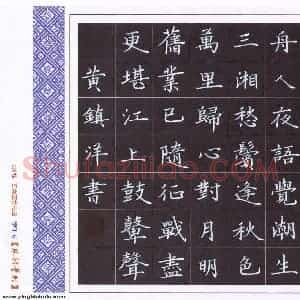 舟人夜語覺潮生
三湘愁鬢逢秋色
萬里歸心對月明
舊業已隨征戰盡
更堪江上鼓鼙聲
黃鎮洋書